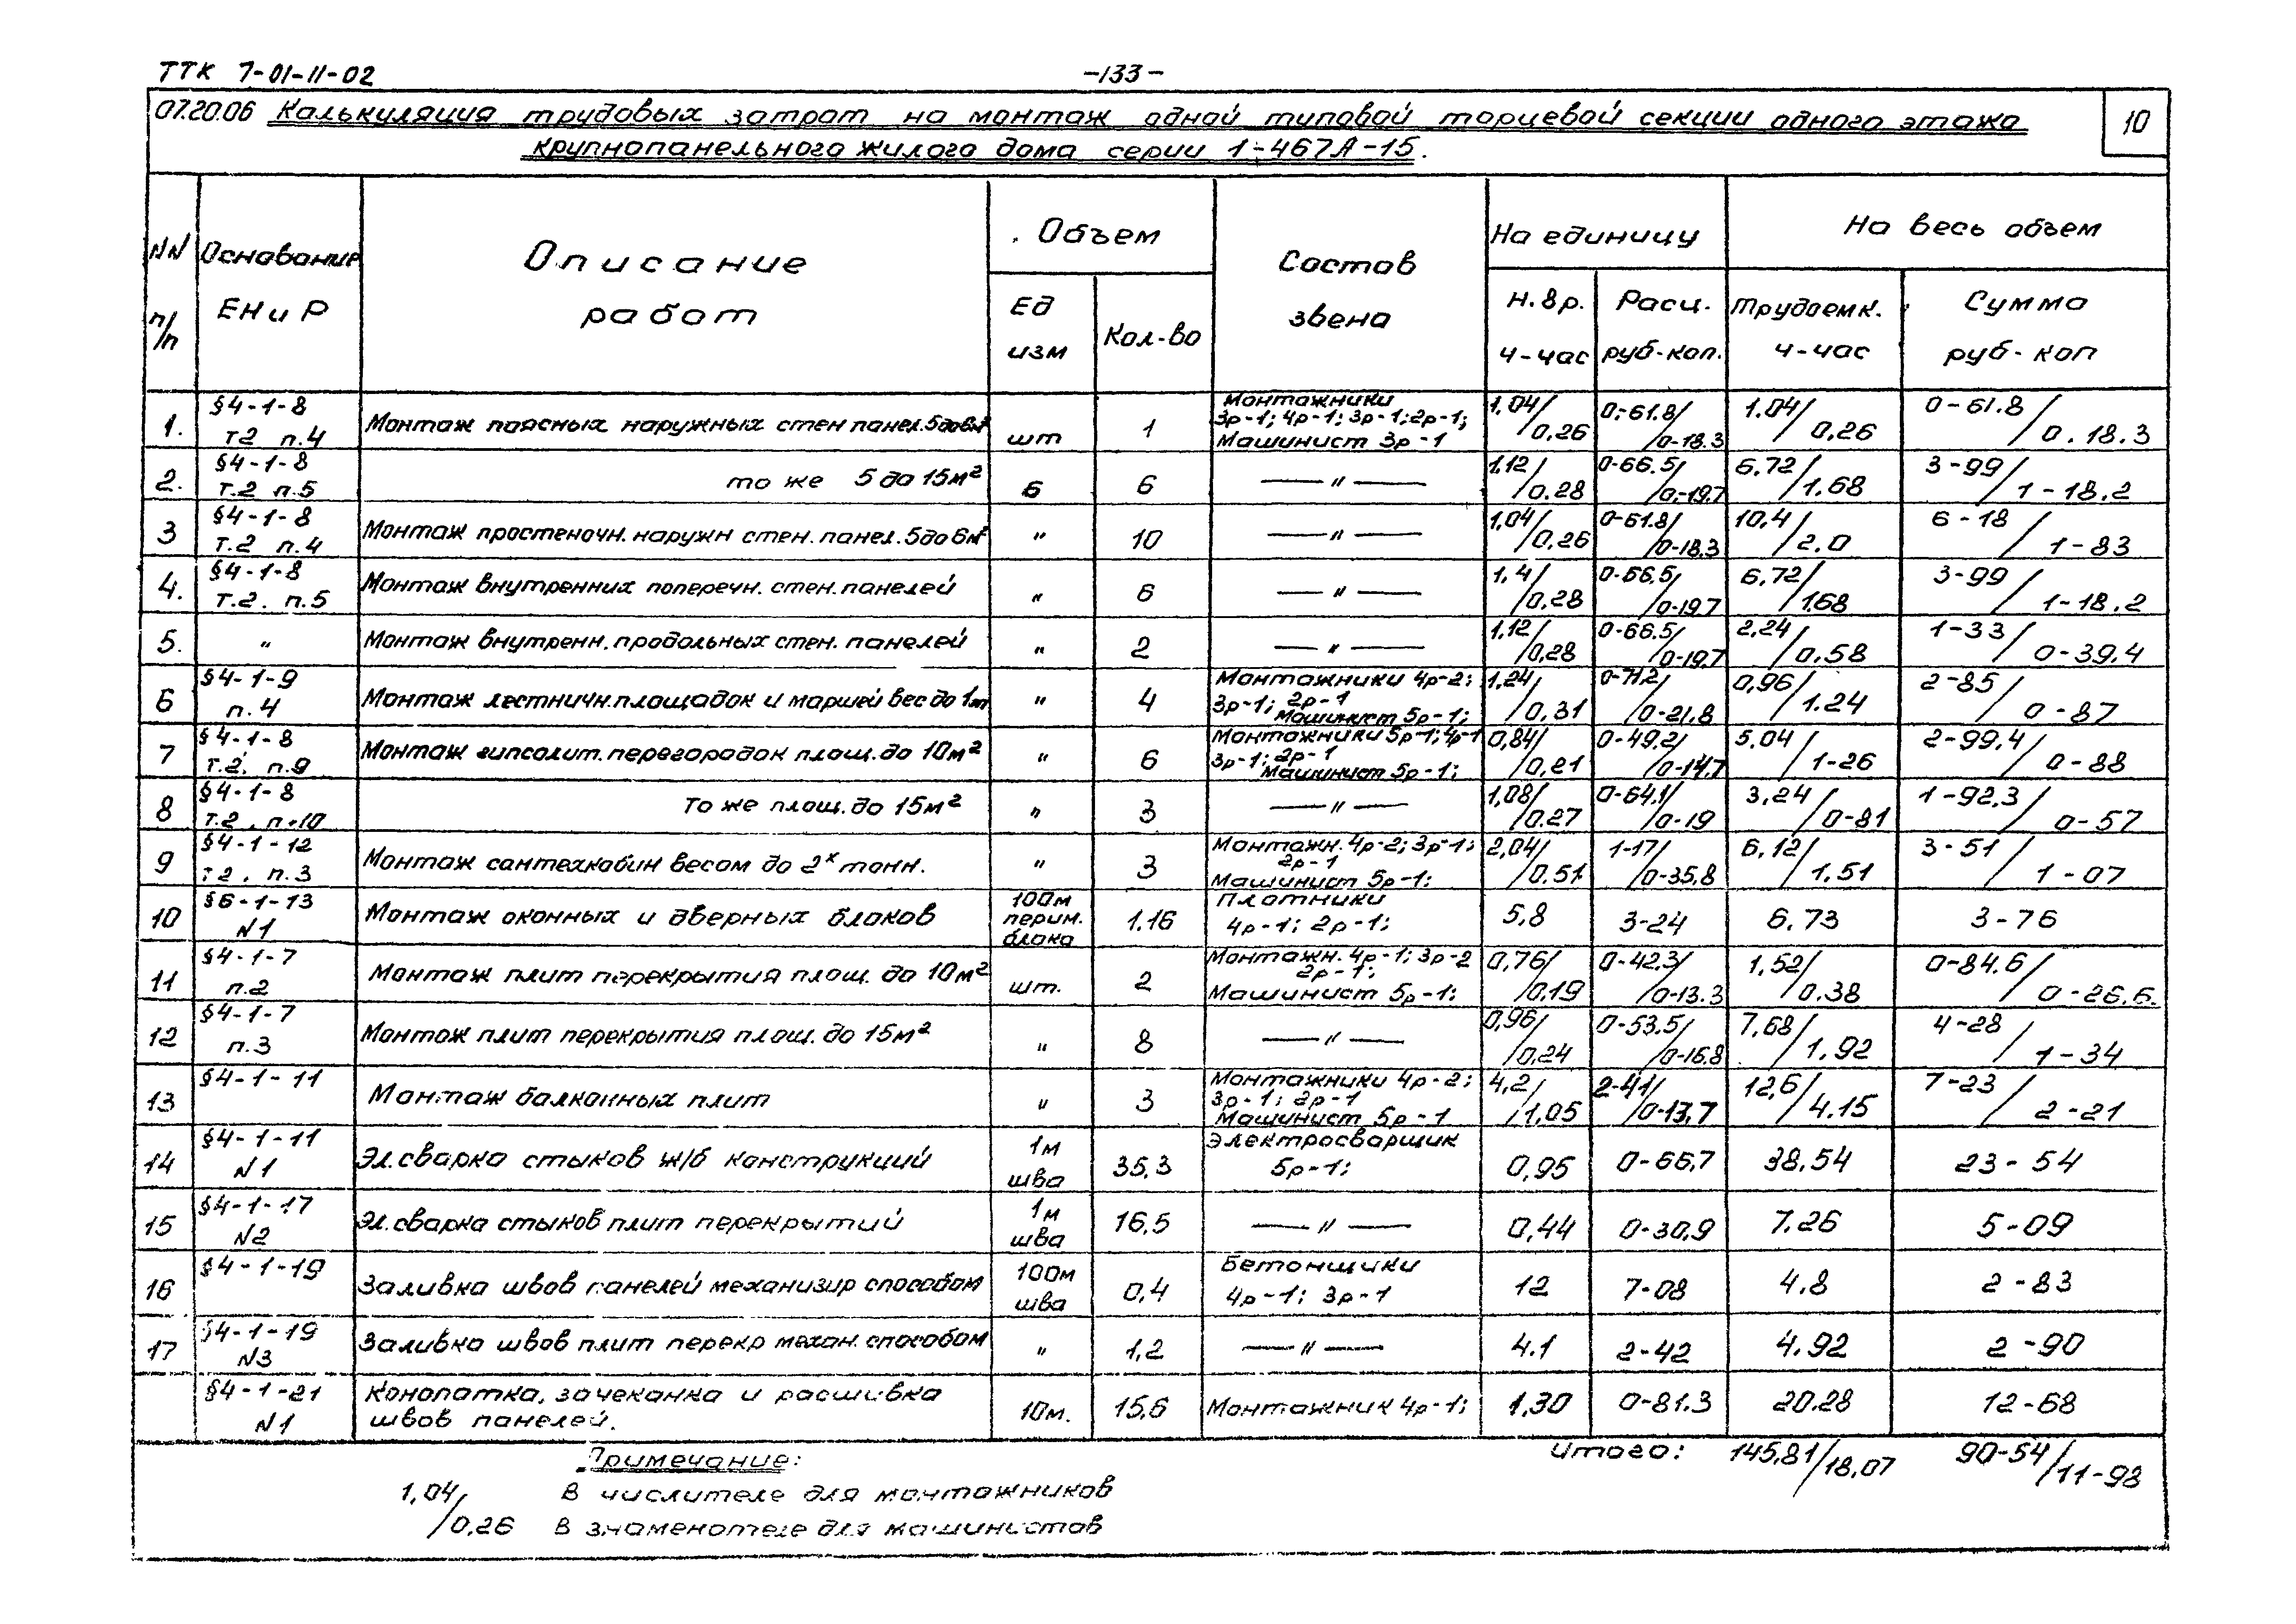 ТТК 7-01-11-02 -133-
07.20.06 Калькуляция трудовых затрат на монтаж одной типовой торцевой секции одного этажа 10
крупнопанельного жилого дома серии 1-467А-15.
NN п/п Основание ЕНиР Описание работ Объем Состав звена На единицу На весь объем
Ед изм Кол-во Н.вр. ч-час Расц. руб-коп. Трудоемк. ч-час Сумма руб-коп
1. §4-1-8 т2 п.4 Монтаж поясных наружных стен панел. 5 до 6м² шт 1 Монтажники 3р-1; 4р-1; 3р-1; 2р-1; Машинист 3р-1 1,04/0,26 0-61.8/0-18.3 1.04/0,26 0-61.8/0.18.3
2. §4-1-8 т.2 п.5 то же 5 до 15м² б 6 —〃— 1,12/0.28 0-66.5/0-19.7 6,72/1.68 3-99/1-18.2
3 §4-1-8 т.2 п.4 Монтаж простеночн. наружн стен. панел. 5 до 6м² " 10 —〃— 1,04/0,26 0-61.8/0-18.3 10,4/2.0 6-18/1-83
4. §4-1-8 т.2. п.5 Монтаж внутренних поперечн. стен. панелей " 6 —〃— 1,4/0,28 0-66,5/0-19.7 6,72/1.68 3-99/1-18.2
5. " Монтаж внутренн. продольных стен. панелей " 2 —〃— 1,12/0,28 0-66.5/0-19.7 2,24/0.58 1-33/0-39.4
6 §4-1-9 п.4 Монтаж лестничн. площадок и маршей вес до 1т " 4 Монтажники 4р-2; 3р-1; 2р-1 Машинист 5р-1; 1,24/0,31 0-71.2/0-21.8 0,96/1.24 2-85/0-87
7 §4-1-8 т.2. п.9 Монтаж гипсолит. перегородок площ. до 10м² " 6 Монтажники 5р-1; 4р-1 3р-1; 2р-1 Машинист 5р-1; 0,84/0,21 0-49.2/0-14,7 5,04/1-26 2-99,4/0-88
8 §4-1-8 т.2. п.10 То же площ. до 15м² " 3 —〃— 1,08/0.27 0-64.1/0-19 3,24/0-81 1-92.3/0-57
9 §4-1-12 т2. п.3 Монтаж сантехкабин весом до 2х тонн. " 3 Монтажн. 4р-2; 3р-1; 2р-1 Машинист 5р-1: 2,04/0.51 1-17/0-35,8 6,12/1,51 3-51/1-07
10 §6-1-13 N1 Монтаж оконных и дверных блоков 100м перим. блока 1.16 Плотники 4р-1; 2р-1; 5,8 3-24 6.73 3-76
11 §4-1-7 п.2 Монтаж плит перекрытия площ. до 10м² шт. 2 Монтажн. 4р-1; 3р-2 2р-1; Машинист 5р-1: 0,76/0,19 0-42.3/0-13.3 1,52/0.38 0-84.6/0-26.6.
12 §4-1-7 п.3 Монтаж плит перекрытия площ. до 15м² " 8 —〃— 0,96/0,24 0-53.5/0-16.8 7,68/1,92 4-28/1-34
13 §4-1-11 Монтаж балконных плит " 3 Монтажники 4р-2; 3р-1; 2р-1 Машинист 5р-1 4,2/1,05 2-41/0-13,7 12,6/4.15 7-23/2-21
14 §4-1-11 N1 Эл.сварка стыков ж/б конструкций 1м шва 35,3 Электросварщик 5р-1; 0,95 0-66,7 38.54 23-54
15 §4-1-17 N2 Эл.сварка стыков плит перекрытий 1м шва 16,5 —〃— 0,44 0-30,9 7.26 5-09
16 §4-1-19 Заливка швов панелей механизир способом 100м шва 0,4 Бетонщики 4р-1; 3р-1 12 7-08 4.8 2-83
17 §4-1-19 N3 Заливка швов плит перекр механ. способом " 1,2 —〃— 4.1 2-42 4.92 2-90
§4-1-21 N1 Конопатка, зачеканка и расшивка швов панелей. 10м. 15,6 Монтажник 4р-1; 1,30 0-81.3 20.28 12-68
Итого: 145,81/18,07 90-54/11-93
Примечание:
1,04/0.26 В числителе для монтажников
В знаменателе для машинистов